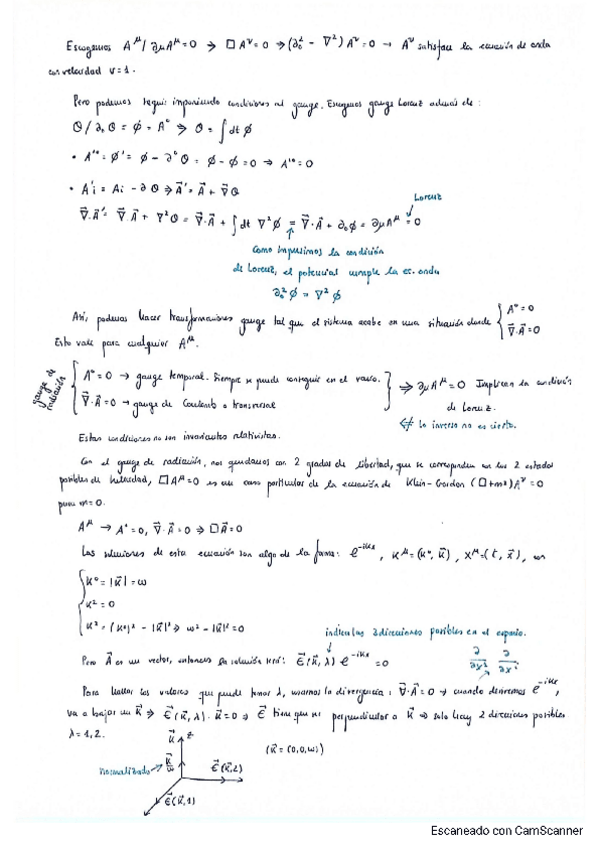 Escogemos A^μ / ∂_μA^μ = 0 → □A^ν = 0 → (∂_0^2 − ∇^2) A^ν = 0 → A^ν satisface la ecuación de onda
con velocidad v = 1.
Pero podemos seguir imponiendo condiciones al gauge. Escogemos gauge Lorenz además de:
θ / ∂_0 θ = ϕ = A^0 ⇒ θ = ∫dt ϕ
• A'^0 = ϕ' = ϕ − ∂^0 θ = ϕ − ϕ = 0 ⇒ A'^0 = 0
• A'i = Ai − ∂θ ⇒ A⃗' = A⃗ + ∇⃗θ
Lorenz
∇⃗·A⃗' = ∇⃗·A⃗ + ∇^2θ = ∇⃗·A⃗ + ∫dt ∇^2ϕ = ∇⃗·A⃗ + ∂_0ϕ = ∂_μA^μ = 0
Como impusimos la condición
de Lorenz, el potencial cumple la ec. onda
∂_0^2 ϕ = ∇^2 ϕ
Así, podemos hacer transformaciones gauge tal que el sistema acabe en una situación donde { A^0 = 0
∇⃗·A⃗ = 0
Esto vale para cualquier A^μ.
gauge de radiación
{ A^0 = 0 → gauge temporal. Siempre se puede conseguir en el vacío.
∇⃗·A⃗ = 0 → gauge de Coulomb o transversal
} ⇒ ∂_μA^μ = 0 Implican la condición
de Lorenz.
⇍ Lo inverso no es cierto.
Estas condiciones no son invariantes relativistas.
Con el gauge de radiación, nos quedamos con 2 grados de libertad, que se corresponden con los 2 estados
posibles de helicidad, □A^μ = 0 es un caso particular de la ecuación de Klein-Gordon (□+m²)A^ν = 0
para m=0.
A^μ → A^0 = 0, ∇⃗·A⃗ = 0 ⇒ □A⃗ = 0
Las soluciones de esta ecuación son algo de la forma: e^{-ikx}, K^μ = (k^0, k⃗), X^μ = (t, x⃗), con
{ K^0 = |k⃗| = ω
K^2 = 0
K^2 = (k^0)^2 − |k⃗|^2 ⇒ ω^2 − |k⃗|^2 = 0
indica las 2 direcciones posibles en el espacio.
Pero A⃗ es un vector, entonces la solución será: ϵ⃗(k⃗, λ) e^{-ikx} = 0
Para hallar los valores que puede tomar λ, usamos la divergencia: ∇⃗·A⃗ = 0 → cuando derivemos e^{-ikx},
va a bajar un k⃗ ⇒ ϵ⃗(k⃗, λ)·k⃗ = 0 ⇒ ϵ⃗ tiene que ser perpendicular a k⃗ ⇒ solo hay 2 direcciones posibles
λ = 1,2.
k⃗ z
(k⃗ = (0,0,ω))
Normalizado
k⃗/ω
ϵ⃗(k⃗,2)
ϵ⃗(k⃗,1)
Escaneado con CamScanner